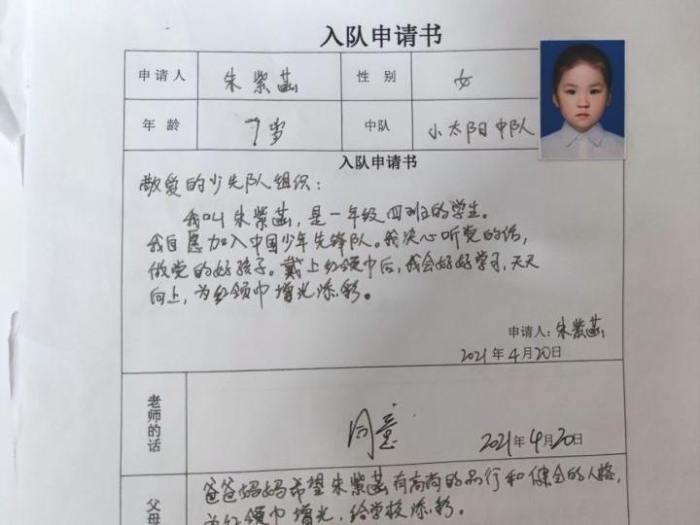 入队申请书
申请人 朱紫菡 性别 女
年龄 7岁 中队 小太阳中队
入队申请书
敬爱的少先队组织：
我叫朱紫菡，是一年级四班的学生。
我自愿加入中国少年先锋队。我决心听党的话，
做党的好孩子。戴上红领巾后，我会好好学习，天天
向上，为红领巾增光添彩。
申请人：朱紫菡
2021年4月20日
老师的话
同意 2021年4月20日
父母
爸爸妈妈希望朱紫菡有高尚的品行和健全的人格，
为红领巾增光，给学校添彩。